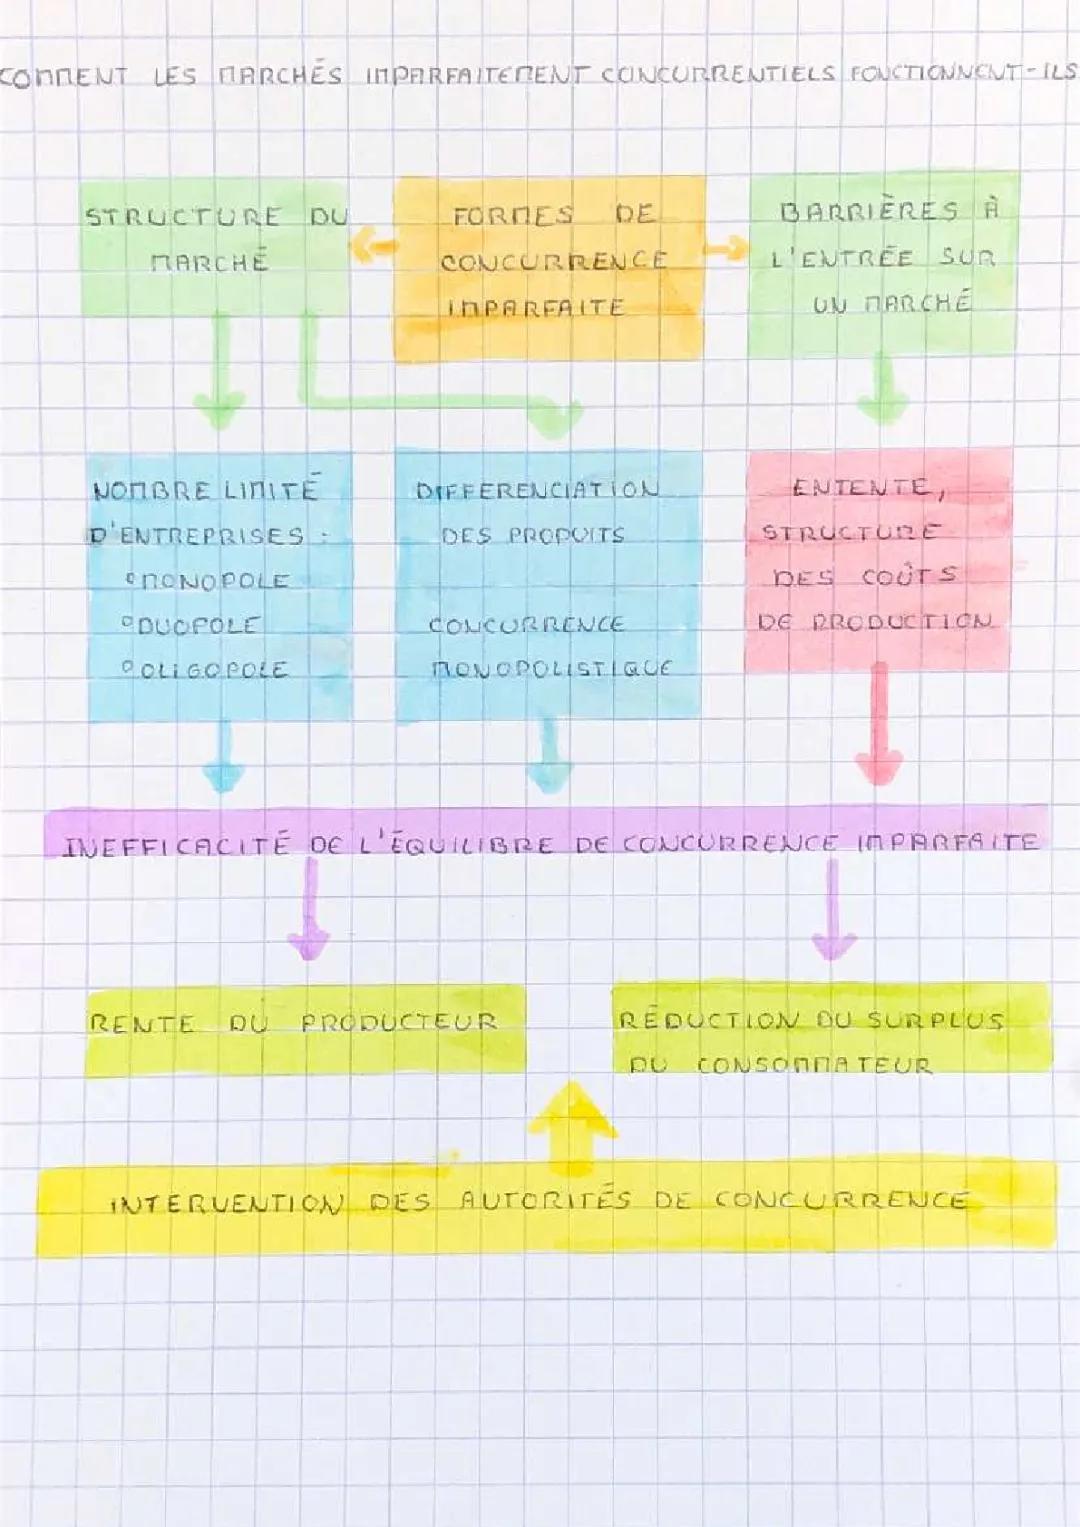 COMMENT LES MARCHÉS IMPARFAITEMENT CONCURRENTIELS FONCTIONNENT-ILS
STRUCTURE DU
MARCHÉ
FORMES DE
CONCURRENCE
IMPARFAITE
BARRIÈRES À
L'ENTRÉE SUR
UN MARCHÉ
NOMBRE LIMITÉ
D'ENTREPRISES :
°MONOPOLE
°DUOPOLE
°OLIGOPOLE
DIFFERENCIATION
DES PRODUITS
CONCURRENCE
MONOPOLISTIQUE
ENTENTE,
STRUCTURE
DES COÛTS
DE PRODUCTION
INEFFICACITÉ DE L'ÉQUILIBRE DE CONCURRENCE IMPARFAITE
RENTE DU PRODUCTEUR
RÉDUCTION DU SURPLUS
DU CONSOMMATEUR
INTERVENTION DES AUTORITÉS DE CONCURRENCE